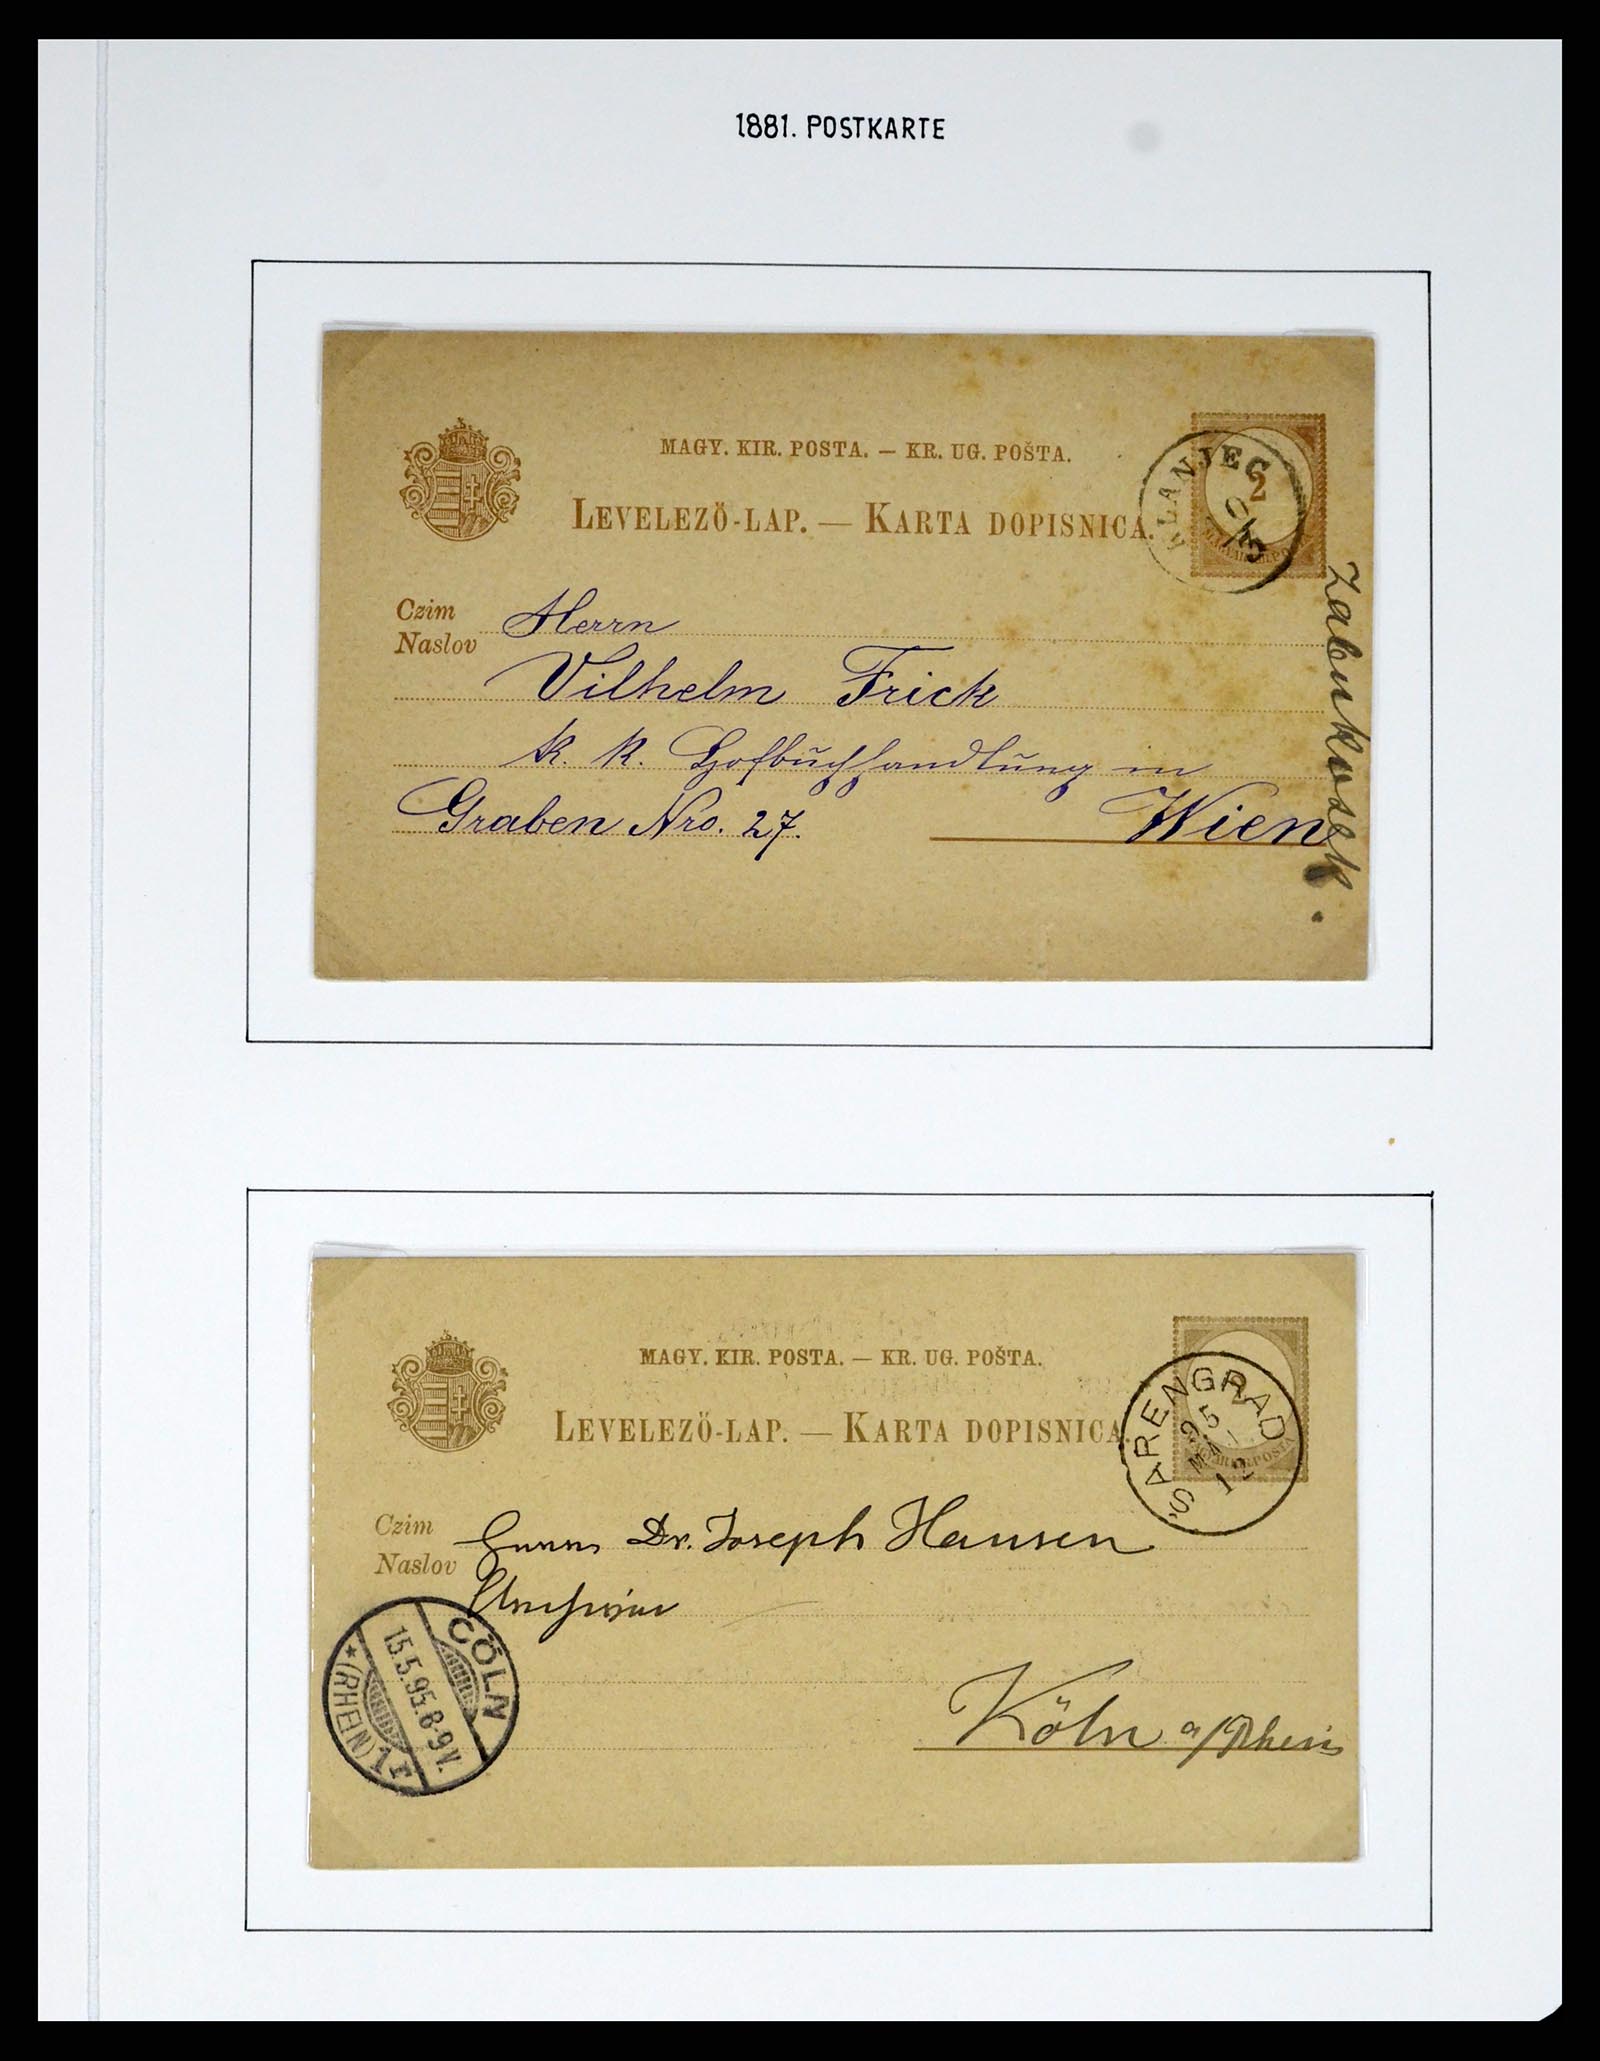 1881. POSTKARTE
MAGY. KIR. POSTA. — KR. UG. POŠTA.
LEVELEZŐ-LAP. — KARTA DOPISNICA.
KLANJEC
2
MAGYAR KIR. POSTA
Czim
Naslov
Herrn
Vilhelm Frick
k. k. Hofbuchhandlung in
Graben Nro. 27.
Wien
Zabenkosek.
MAGY. KIR. POSTA. — KR. UG. POŠTA.
LEVELEZŐ-LAP. — KARTA DOPISNICA.
ŠARENGRAD
95
MAI
12
2
MAGYAR KIR. POSTA
Czim
Naslov
Herrn Dr. Joseph Hansen
Köln a/Rhein
CÖLN
15.5.95.8-9V.
* (RHEIN) 1 r